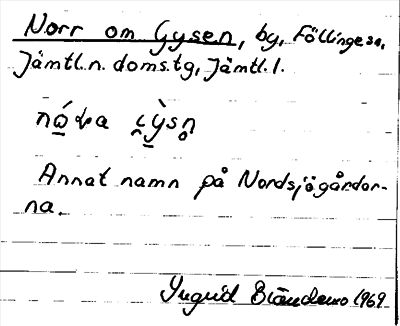 Norr om Gysen, by, Föllinge sn,
Jämtl. n. doms.tg, Jämtl. l.
Annat namn på Nordsjögårdar-
na.
Ingrid 1969